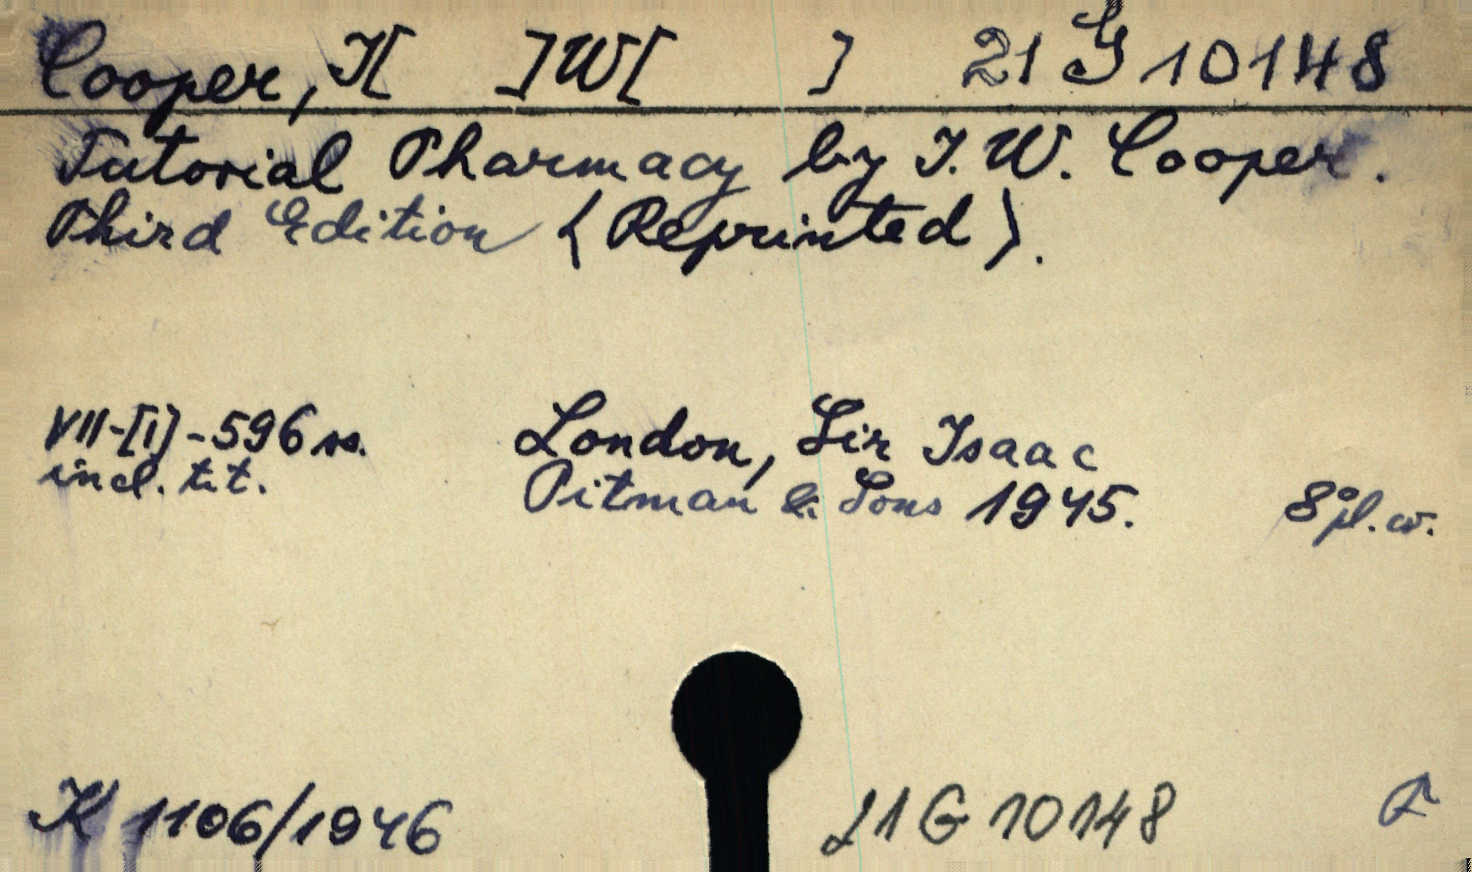 Cooper, J[ ]W[ ] 21 G 10148
Tutorial Pharmacy by J. W. Cooper.
Third Edition (Reprinted).
VII-[1]-596 ss.
incl. tit.
London, Sir Isaac
Pitman & Sons 1945.
8° pl. w.
K 1106/1946
21 G 10148